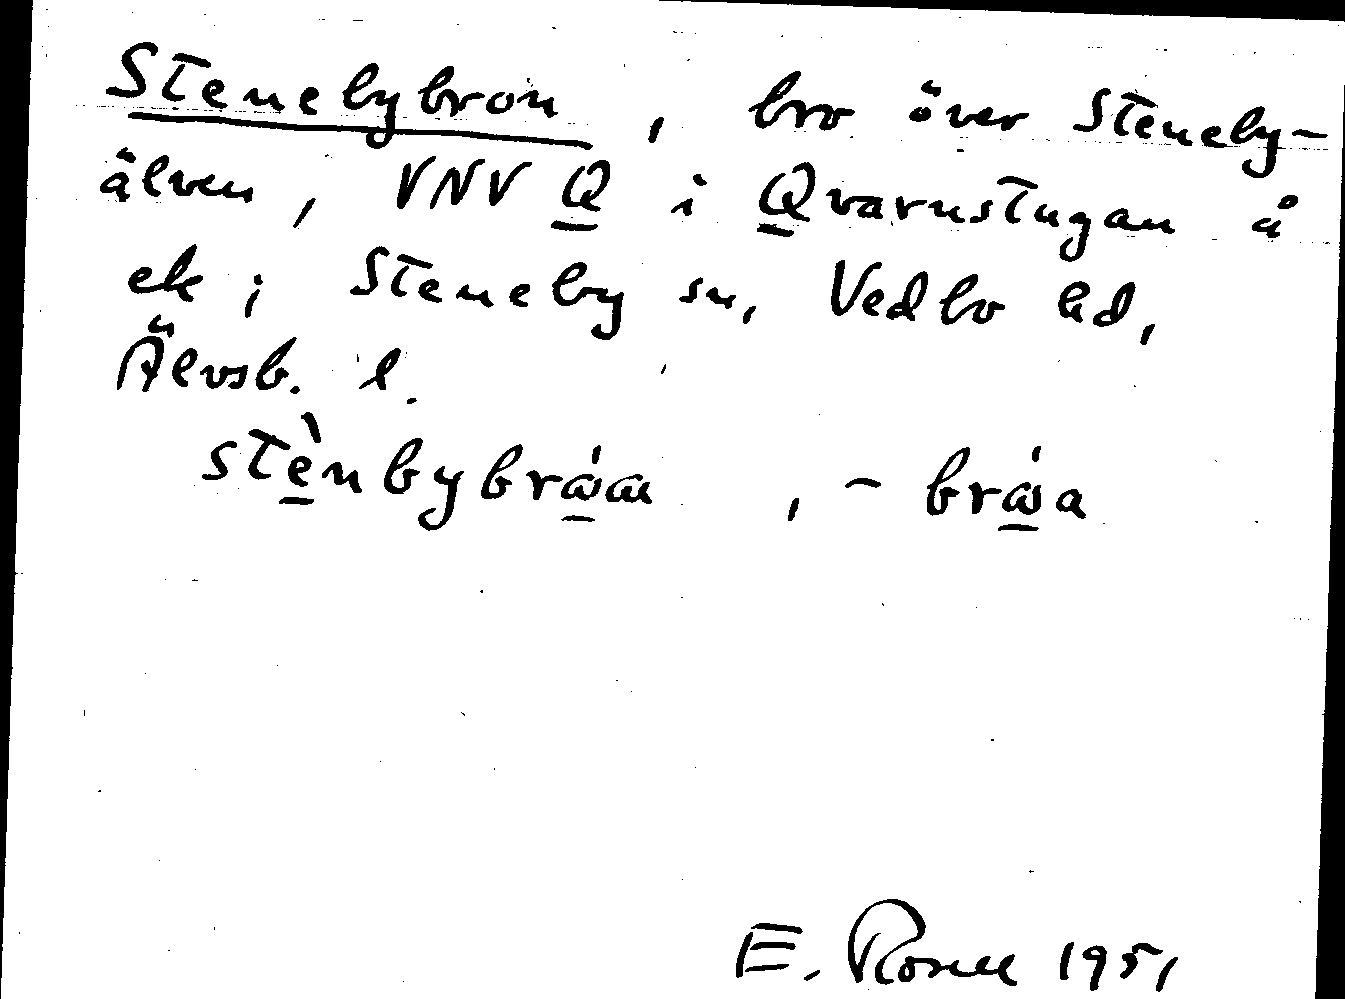 Stenebybron, bro över Steneby-
älven, VNV Q i Qvarnstugan å
ek; Steneby sn, Vedbo hd,
Älvsb. l.
stènbybrώɑ, - brώa
E. 1951